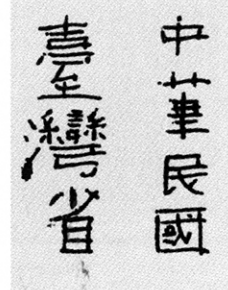 中華民國
臺灣省